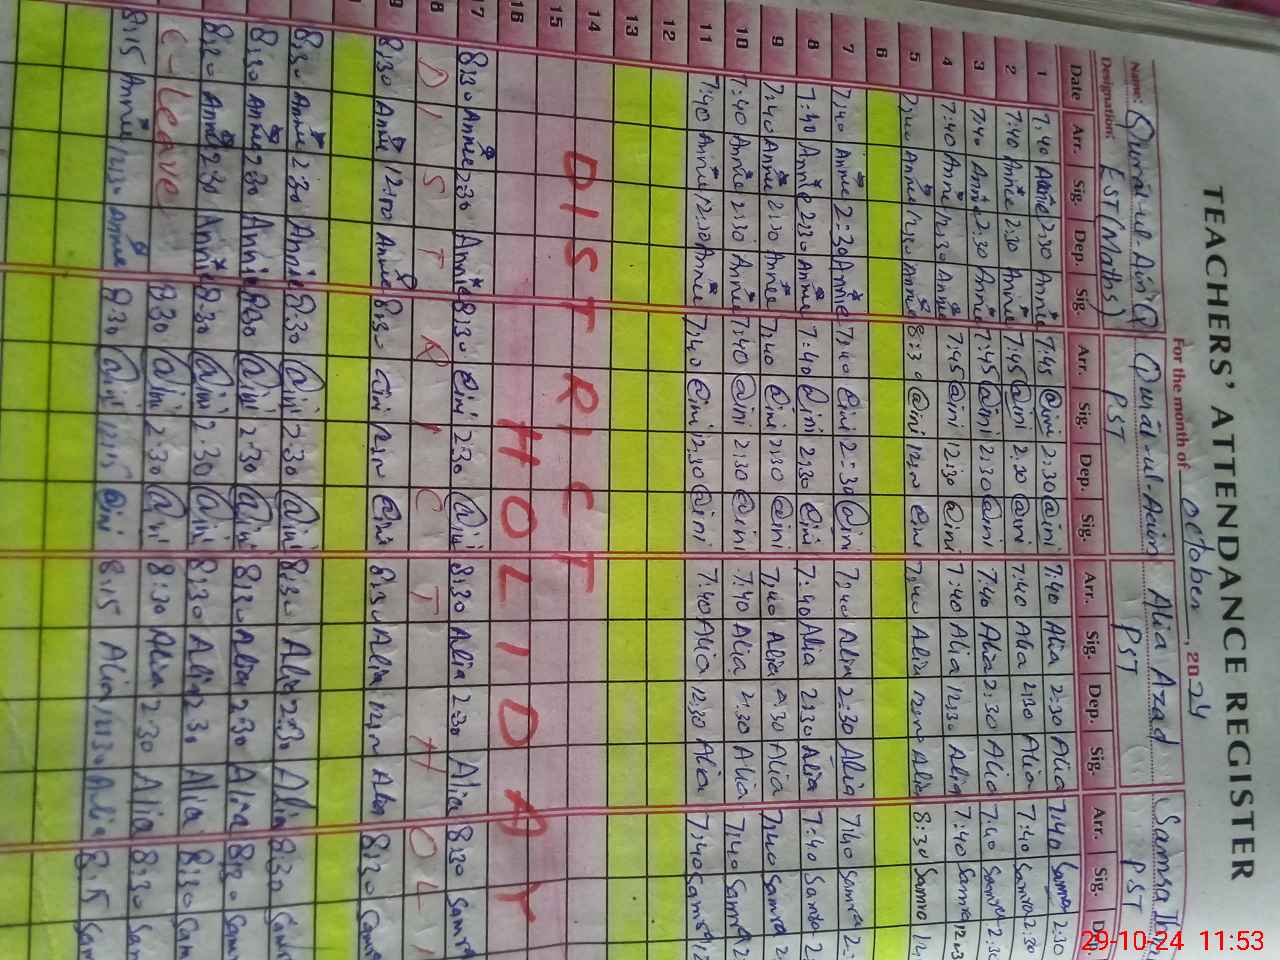 TEACHERS' ATTENDANCE REGISTER
For the month of October, 2024
Name: Qurrat-ul-Ain Q Qurat-ul-Acin Alia Azad Samra
Designation: EST (Maths) PST PST PST
Date Arr. Sig. Dep. Sig. Arr. Sig. Dep. Sig. Arr. Sig. Dep. Sig. Arr. Sig.
1 7:40 Annie 2:30 Annie 7:45 @ini 2:30 @ini 7:40 Alia 2:30 Alia 7:40 Samra 2:30
2 7:40 Annie 2:30 Annie 7:45 @ini 2:30 @ini 7:40 Alia 2:30 Alia 7:40 Samra 2:30
3 7:40 Annie 2:30 Annie 7:45 @ini 2:30 @ini 7:40 Alia 2:30 Alia 7:40 Samra 2:30
4 7:40 Annie 12:30 Annie 7:45 @ini 12:30 @ini 7:40 Alia 12:30 Alia 7:40 Samra
5 Annie Annie 8:30 @ini @ini Alia Alia 8:30 Samra
6
7 7:40 Annie 2:30 Annie 7:40 @ini 2:30 @ini 7:40 Alia 2:30 Alia 7:40 Samra
8 7:40 Annie 2:30 Annie 7:40 @ini 2:30 @ini 7:40 Alia 2:30 Alia 7:40 Samra
9 7:40 Annie 2:30 Annie 7:40 @ini 2:30 @ini 7:40 Alia 2:30 Alia 7:40 Samra
10 7:40 Annie 2:30 Annie 7:40 @ini 2:30 @ini 7:40 Alia 2:30 Alia 7:40 Samra
11 7:40 Annie 12:30 Annie 7:40 @ini 12:30 @ini 7:40 Alia 12:30 Alia 7:40 Samra
12
13
14 DISTRICT
15
16 HOLIDAY
17 8:30 Annie 2:30 Annie 8:30 @ini 2:30 @ini 8:30 Alia 2:30 Alia 8:30 Samra
8 DISTRICT HOLI
9 8:30 Annie 12:00 Annie 8:30 @ini @ini 8:30 Alia Alia 8:30
8:30 Annie 2:30 Annie 8:30 @ini 2:30 @ini 8:30 Alia 2:30 Alia 8:30
8:30 Annie 2:30 Annie 8:30 @ini 2:30 @ini 8:30 Alia 2:30 Alia 8:30
8:20 Annie 2:30 Annie 8:30 @ini 2:30 @ini 8:30 Alia 2:30 Alia 8:30
C-Leave 8:30 @ini 2:30 @ini 8:30 Alia 2:30 Alia 8:30
8:15 Annie 12:30 Annie 8:30 @ini 12:15 @ini 8:15 Alia 12:30 Alia 8:15
29-10-24 11:53